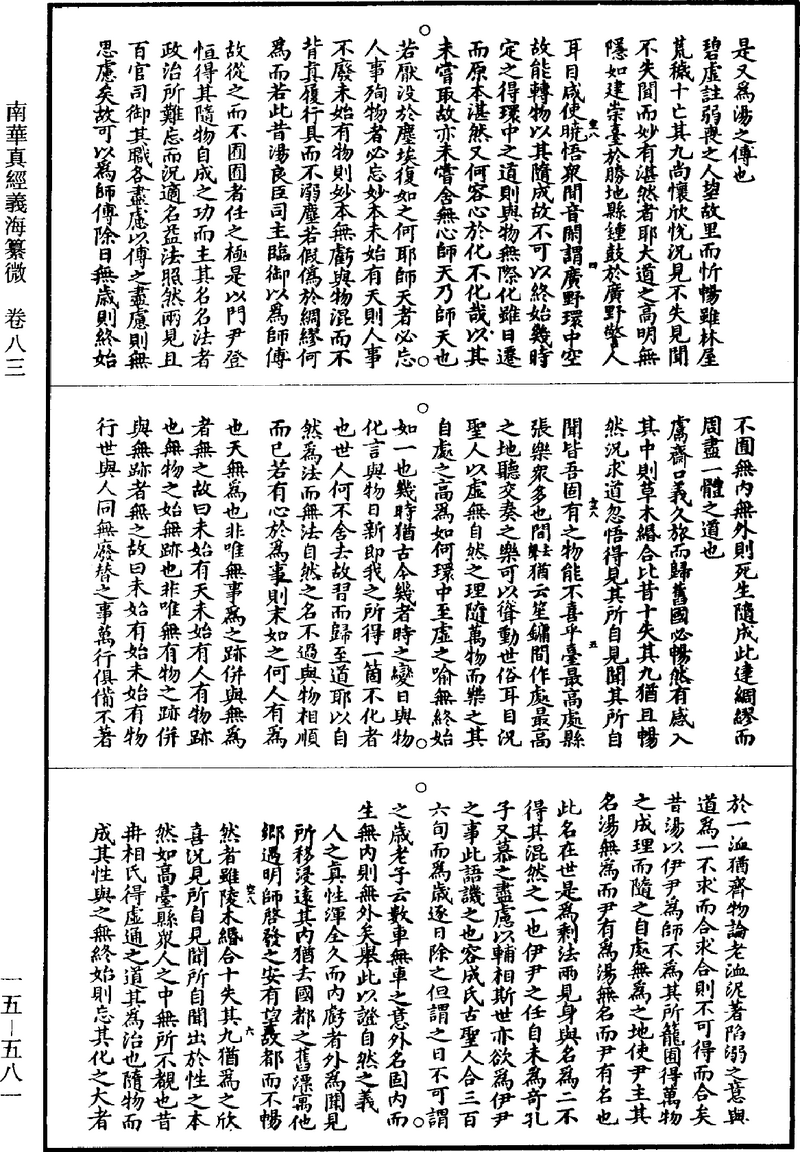 南華真經義海纂微　卷八三
是又為湯之傅也
碧虛註弱喪之人望故里而忻暢雖林屋
荒穢十亡其九尚懷欣恱況見不失見聞
不失聞而妙有湛然者耶大道之高明無
隱如建崇臺於勝地縣鍾鼓於廣野警人
耳目咸使曉悟衆聞音閒謂廣野環中空
故能轉物以其隨成故不可以終始幾時
定之得環中之道則與物無際化雖日遷
而原本湛然又何容心於化不化哉以其
未嘗取故亦未嘗舍無心師天乃師天也
若厭没於塵埃復如之何耶師天者必忘
人事殉物者必忘妙本未始有天則人事
不廢未始有物則妙本無虧與物混而不
背真履行具而不溺塵若假偽於綢繆何
為而若此昔湯良臣司主臨御以為師傅
故從之而不囿囿者任之極是以門尹登
恒得其隨物自成之功而主其名名法者
政治所難忘而況適名益法照然兩見且
百官司御其職各盡慮以傅之盡慮則無
思慮矣故可以為師傅除日無歲則終始
不囿無内無外則死生隨成此達綢繆而
周盡一體之道也
鬳齋口義久旅而歸舊國必暢然有感入
其中則草木緡合比昔十失其九猶且暢
然況求道忽悟得見其所自見聞其所自
聞皆吾固有之物能不喜乎臺最高處縣
張樂衆多也間去聲猶云笙鏞間作處最高
之地聽交奏之樂可以聳動世俗耳目況
聖人以虛無自然之理隨萬物而樂之其
自處之高為如何環中至虛之喻無終始
如一也幾時猶古今幾者時之變日與物
化言與物日新即我之所得一箇不化者
也世人何不舍去故習而歸至道耶以自
然為法而無法自然之名不過與物相順
而已若有心於為事則末如之何人有為
也天無為也非唯無事為之跡併與無為
者無之故曰未始有天未始有人有物跡
也無物之始無跡也非唯無有物之跡併
與無跡者無之故曰未始有始未始有物
行世與人同無廢替之事萬行俱備不著
於一洫猶齊物論老洫泥著陷溺之意與
道為一不求而合求合則不可得而合矣
昔湯以伊尹為師不為其所籠囿得萬物
之成理而隨之自處無為之地使尹主其
名湯無為而尹有為湯無名而尹有名也
此名在世是為剩法兩見身與名為二不
得其混然之一也伊尹之任自未為奇孔
子又慕之盡慮以輔相斯世亦欲為伊尹
之事此語譏之也容成氏古聖人合三百
六旬而為歲逐日除之但謂之日不可謂
之歲老子云數車無車之意外名固内而
生無内則無外矣舉此以證自然之義
人之真性渾全久而内虧者外為聞見
所移浸遠其内猶去國都之舊漂寓他
鄉遇明師啓發之安有望故都而不暢
然者雖陵木緡合十失其九猶為之欣
喜況見所自見聞所自聞出於性之本
然如高臺縣衆人之中無所不覩也昔
冉相氏得虛通之道其為治也隨物而
成其性與之無終始則忘其化之大者
一五—五八一